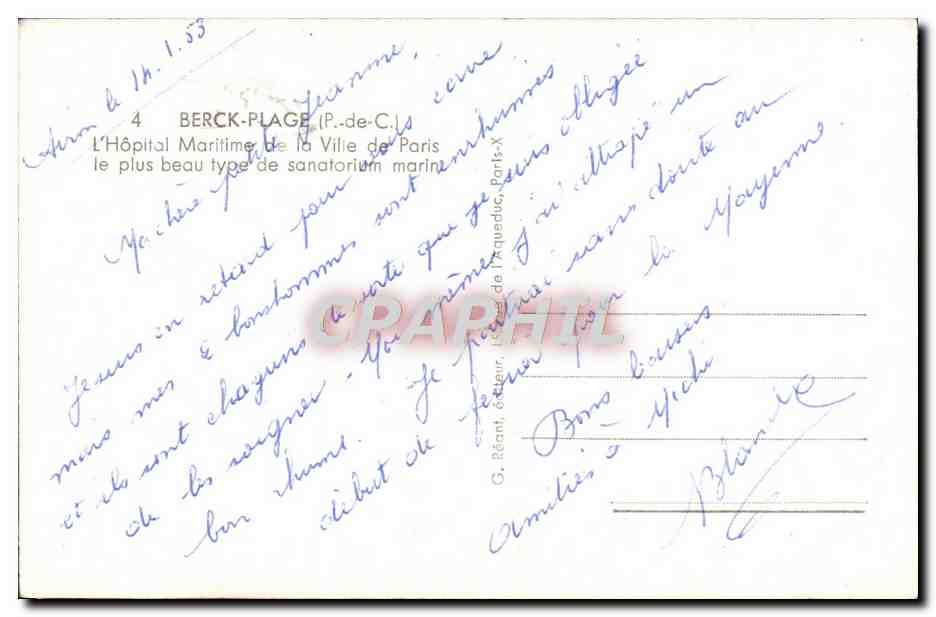 Airon le 14.1.53
4 BERCK-PLAGE (P.-de-C.)
L'Hôpital Maritime de la Ville de Paris
le plus beau type de sanatorium marin
Ma chère petite Jeannine,
Je suis en retard pour vous écrire
mais mes 2 bonshommes sont enrhumés
et ils sont chagrins de sorte que je suis obligée
de les soigner - Moi même j'ai attrapé un
bon rhume. Je partirai sans doute au
début de février pour la Mayenne.
Bons baisers
amitiés à Michi
Blanche
G. Réant, éditeur, de l'Aqueduc, Paris-X
CRAPHIL